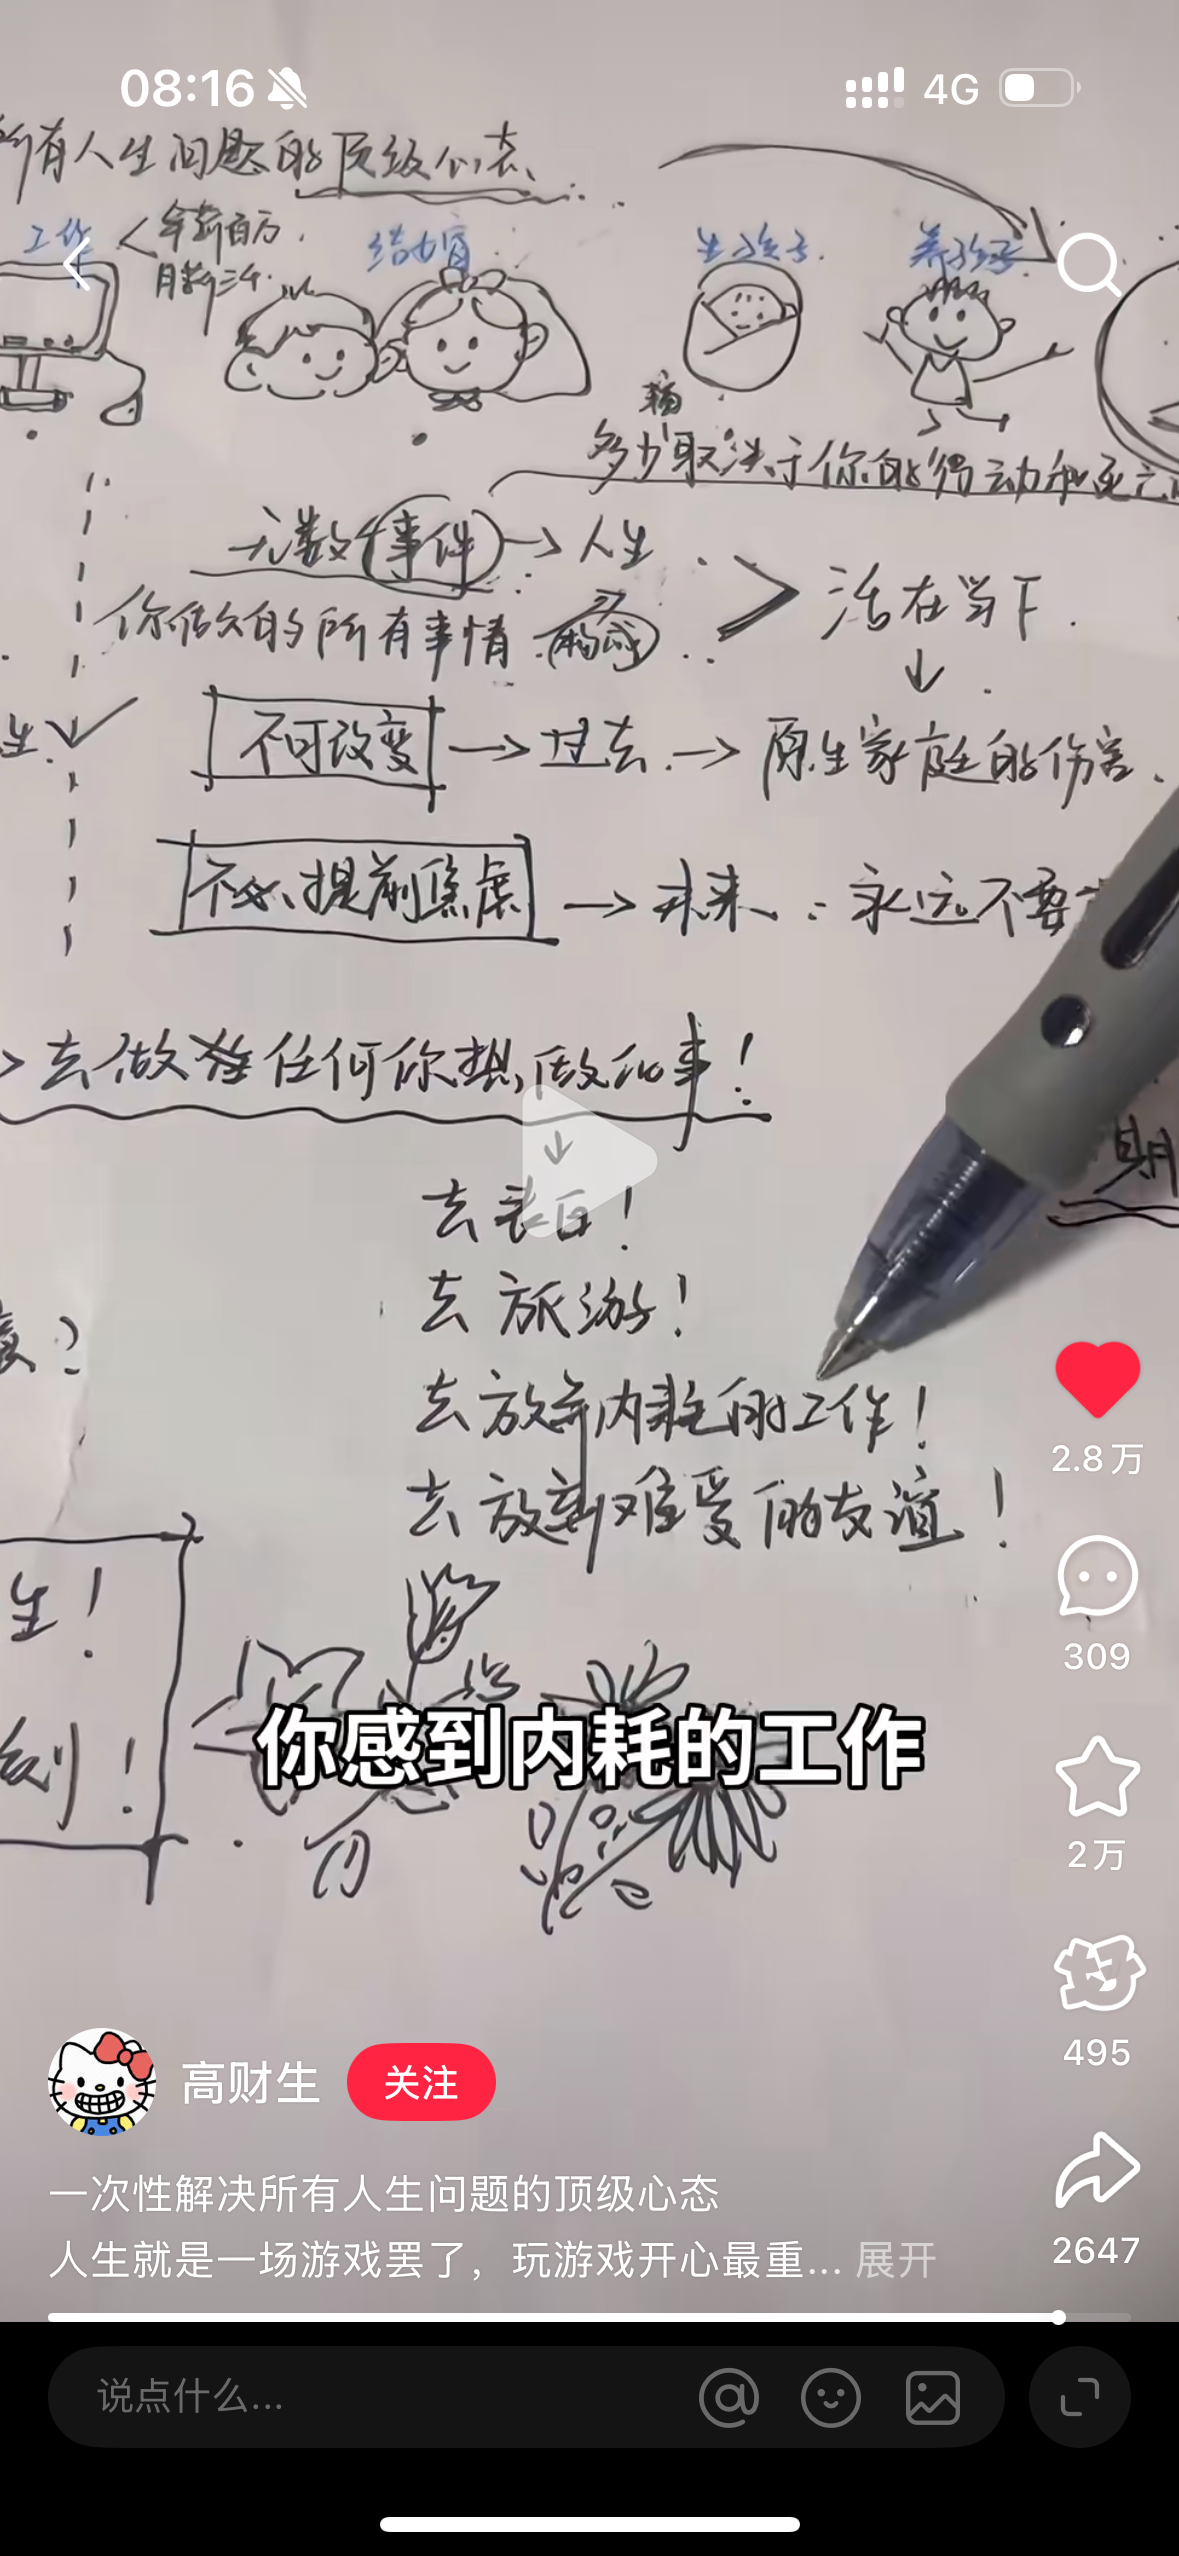 08:16
4G
所有人生问题的顶级心态
工作
年薪百万
月薪三千
结婚
生孩子
养孩子
多少取决于你的
无数个事件
人生
你做的所有事情
活在当下
不可改变
过去
原生家庭的伤害
不必提前焦虑
未来
永远不要
去做任何你想做的事!
去表白!
去旅游!
期
去放弃内耗的工作!
2.8万
去放弃难受的友谊!
生!
309
你感到内耗的工作
刻!
2万
495
高财生
关注
一次性解决所有人生问题的顶级心态
人生就是一场游戏罢了，玩游戏开心最重... 展开
2647
说点什么...